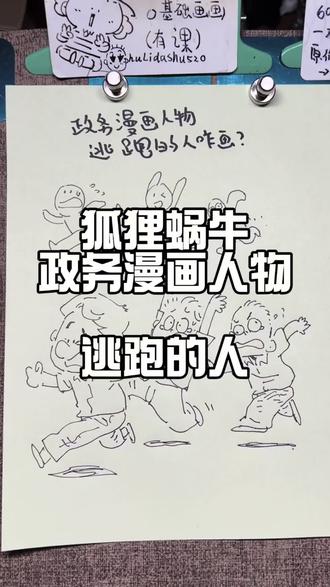 0基础画画
(有课)
hulidashu520
60
政务漫画人物
逃跑的人咋画?
狐狸蜗牛
政务漫画人物
逃跑的人